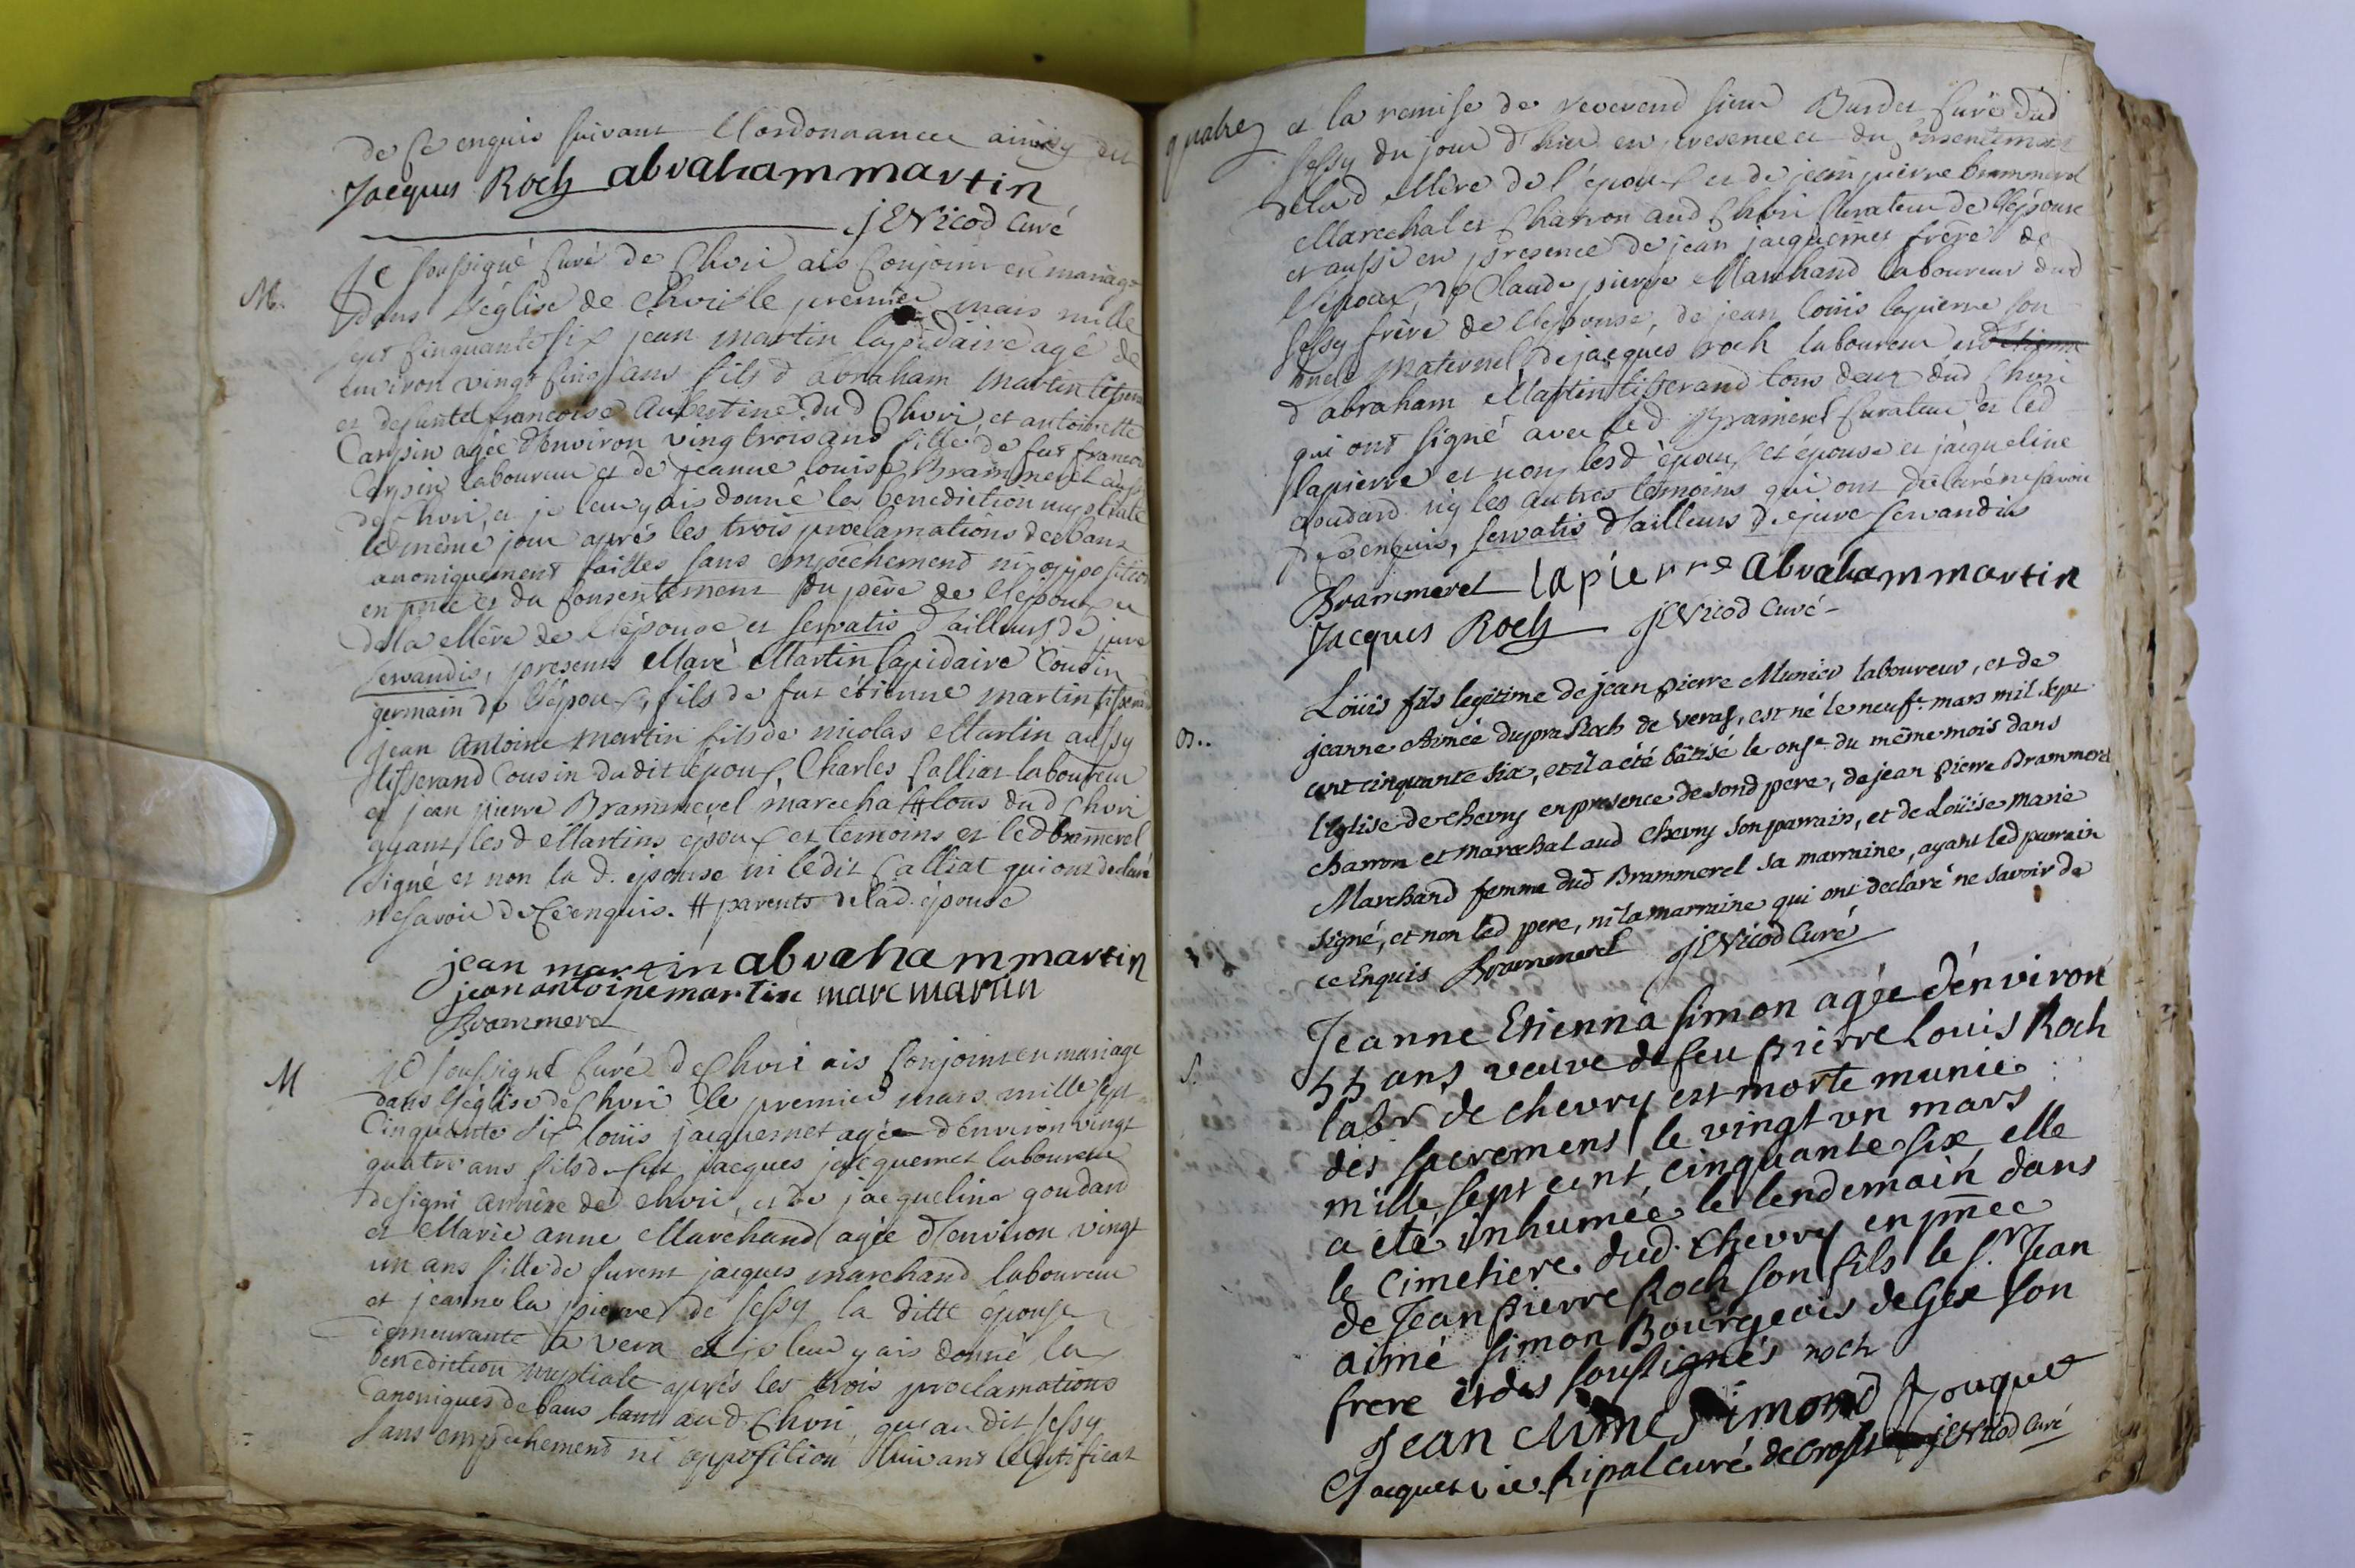 de ce enquis suivant l'ordonnance ainsy dit
Jacques Roch abraham martin
jENicod Curé
M. Je soussigné Curé de Chvri ais Conjoint en mariage
dans l'église de Chvri le premier mars mille
sept Cinquante six jean martin lapidaire agé de
environ vingt Cinq ans fils d'abraham martin
et defunte francoise du d Chvri, et antoinette
Carpin agée d'environ vingt trois ans fille de fut francois
Carpin laboureur et de jeanne louise Brammerel aussi
de Chvri, et je leur y ais donné la benediction nuptiale
le même jour aprés les trois proclamations de bans
canoniquement faittes sans empechement ni opposition
en pnce et du Consentement du père de l'époux et
de la Mère de l'épouse et servatis d'ailleurs de jure
servandis, presents Marc Martin lapidaire Cousin
germain de l'époux, fils de fut étienne martin tisserand
jean Antoine martin fils de nicolas Martin aussy
tisserand Cousin dudit époux, Charles Calliat laboureur
et jean pierre Brammerel marechal # tous dud Chvri
ayant les d Martins époux et temoins et led brammerel
signé et non la d. épouse ni ledit Calliat qui ont declaré
ne savoir de ce enquis. # parents de lad. épouse
jean martin abraham martin
jean antoine martin marc martin
Brammerel
M je soussigné Curé de Chvri ais Conjoint en mariage
dans l'église de Chvri le premier mars mille sept
Cinquante six louis jacquemet agé d'environ vingt
quatre ans fils de fut jacques jacquemet laboureur
de signi de Chvri, et de jacqueline goudard
et Marie anne Marchand agée d'environ vingt
un ans fille de furent jacques marchand laboureur
et jeanne la pierre de sessy la ditte épouse
demeurante a vera et je leur y ais donné la
benediction nuptiale aprés les trois proclamations
Canoniques de bans tant au d. Chvri que au dit sessy
sans empechement ni opposition suivant le Certificat
et la remise de reverend sieur Burdet Curé dud
sessy du jour d'hier en presence et du consentement
delad Mère de l'époux et de jean pierre brammerel
Marechal et Charron aud Chvri Curateur de l'épouse
et aussi en presence de jean jacquemet frère de
l'époux, de Claude pierre Marchand laboureur dud
sessy frère de l'épouse, de jean louis lapierre son
oncle maternel, de jacques roch laboureur et
d'abraham Martin tisserand tous deux dud Chvri
qui ont signé avec led Brammerel Curateur et led
lapierre et non lesd époux et épouse et jacqueline
goudard ny les autres temoins qui ont declaré ne savoir
de ce enquis, servatis d'ailleurs de jure servandis
Brammerel lapierre abraham martin
Jacques Roch jENicod Curé
B.. Loüis fils legitime de jean pierre Munier laboureur, et de
jeanne Aimée dupra Roch de veraz, est né le neufe mars mil sept
cent cinquante six, et il a été bâtisé le onze du même mois dans
l'Eglise de chevry en presence de sond pere, de jean pierre Brammerel
charron et marechal aud chevry son parrain, et de Loüise marie
Marchand femme dud Brammerel sa marraine, ayant led parrain
signé, et non led pere, ni la marraine qui ont declaré ne savoir de
ce Enquis Brammerel jENicod Curé
S. Jeanne Etienna simon agée d'environ
55 ans veuve de feu pierre Louis Roch
labr de chevry est morte munie
des sacremens le vingt un mars
mille sept cent cinquante six elle
a été inhumée le lendemain dans
le cimetiere dud. chevry en pnce
de Jean pierre Roch son fils le sr Jean
aimé simon Bourgeois de Gex son
frere et des soussignés roch
Jean Aimé Simond fouquet
Jacquet vic. jENicod Curé